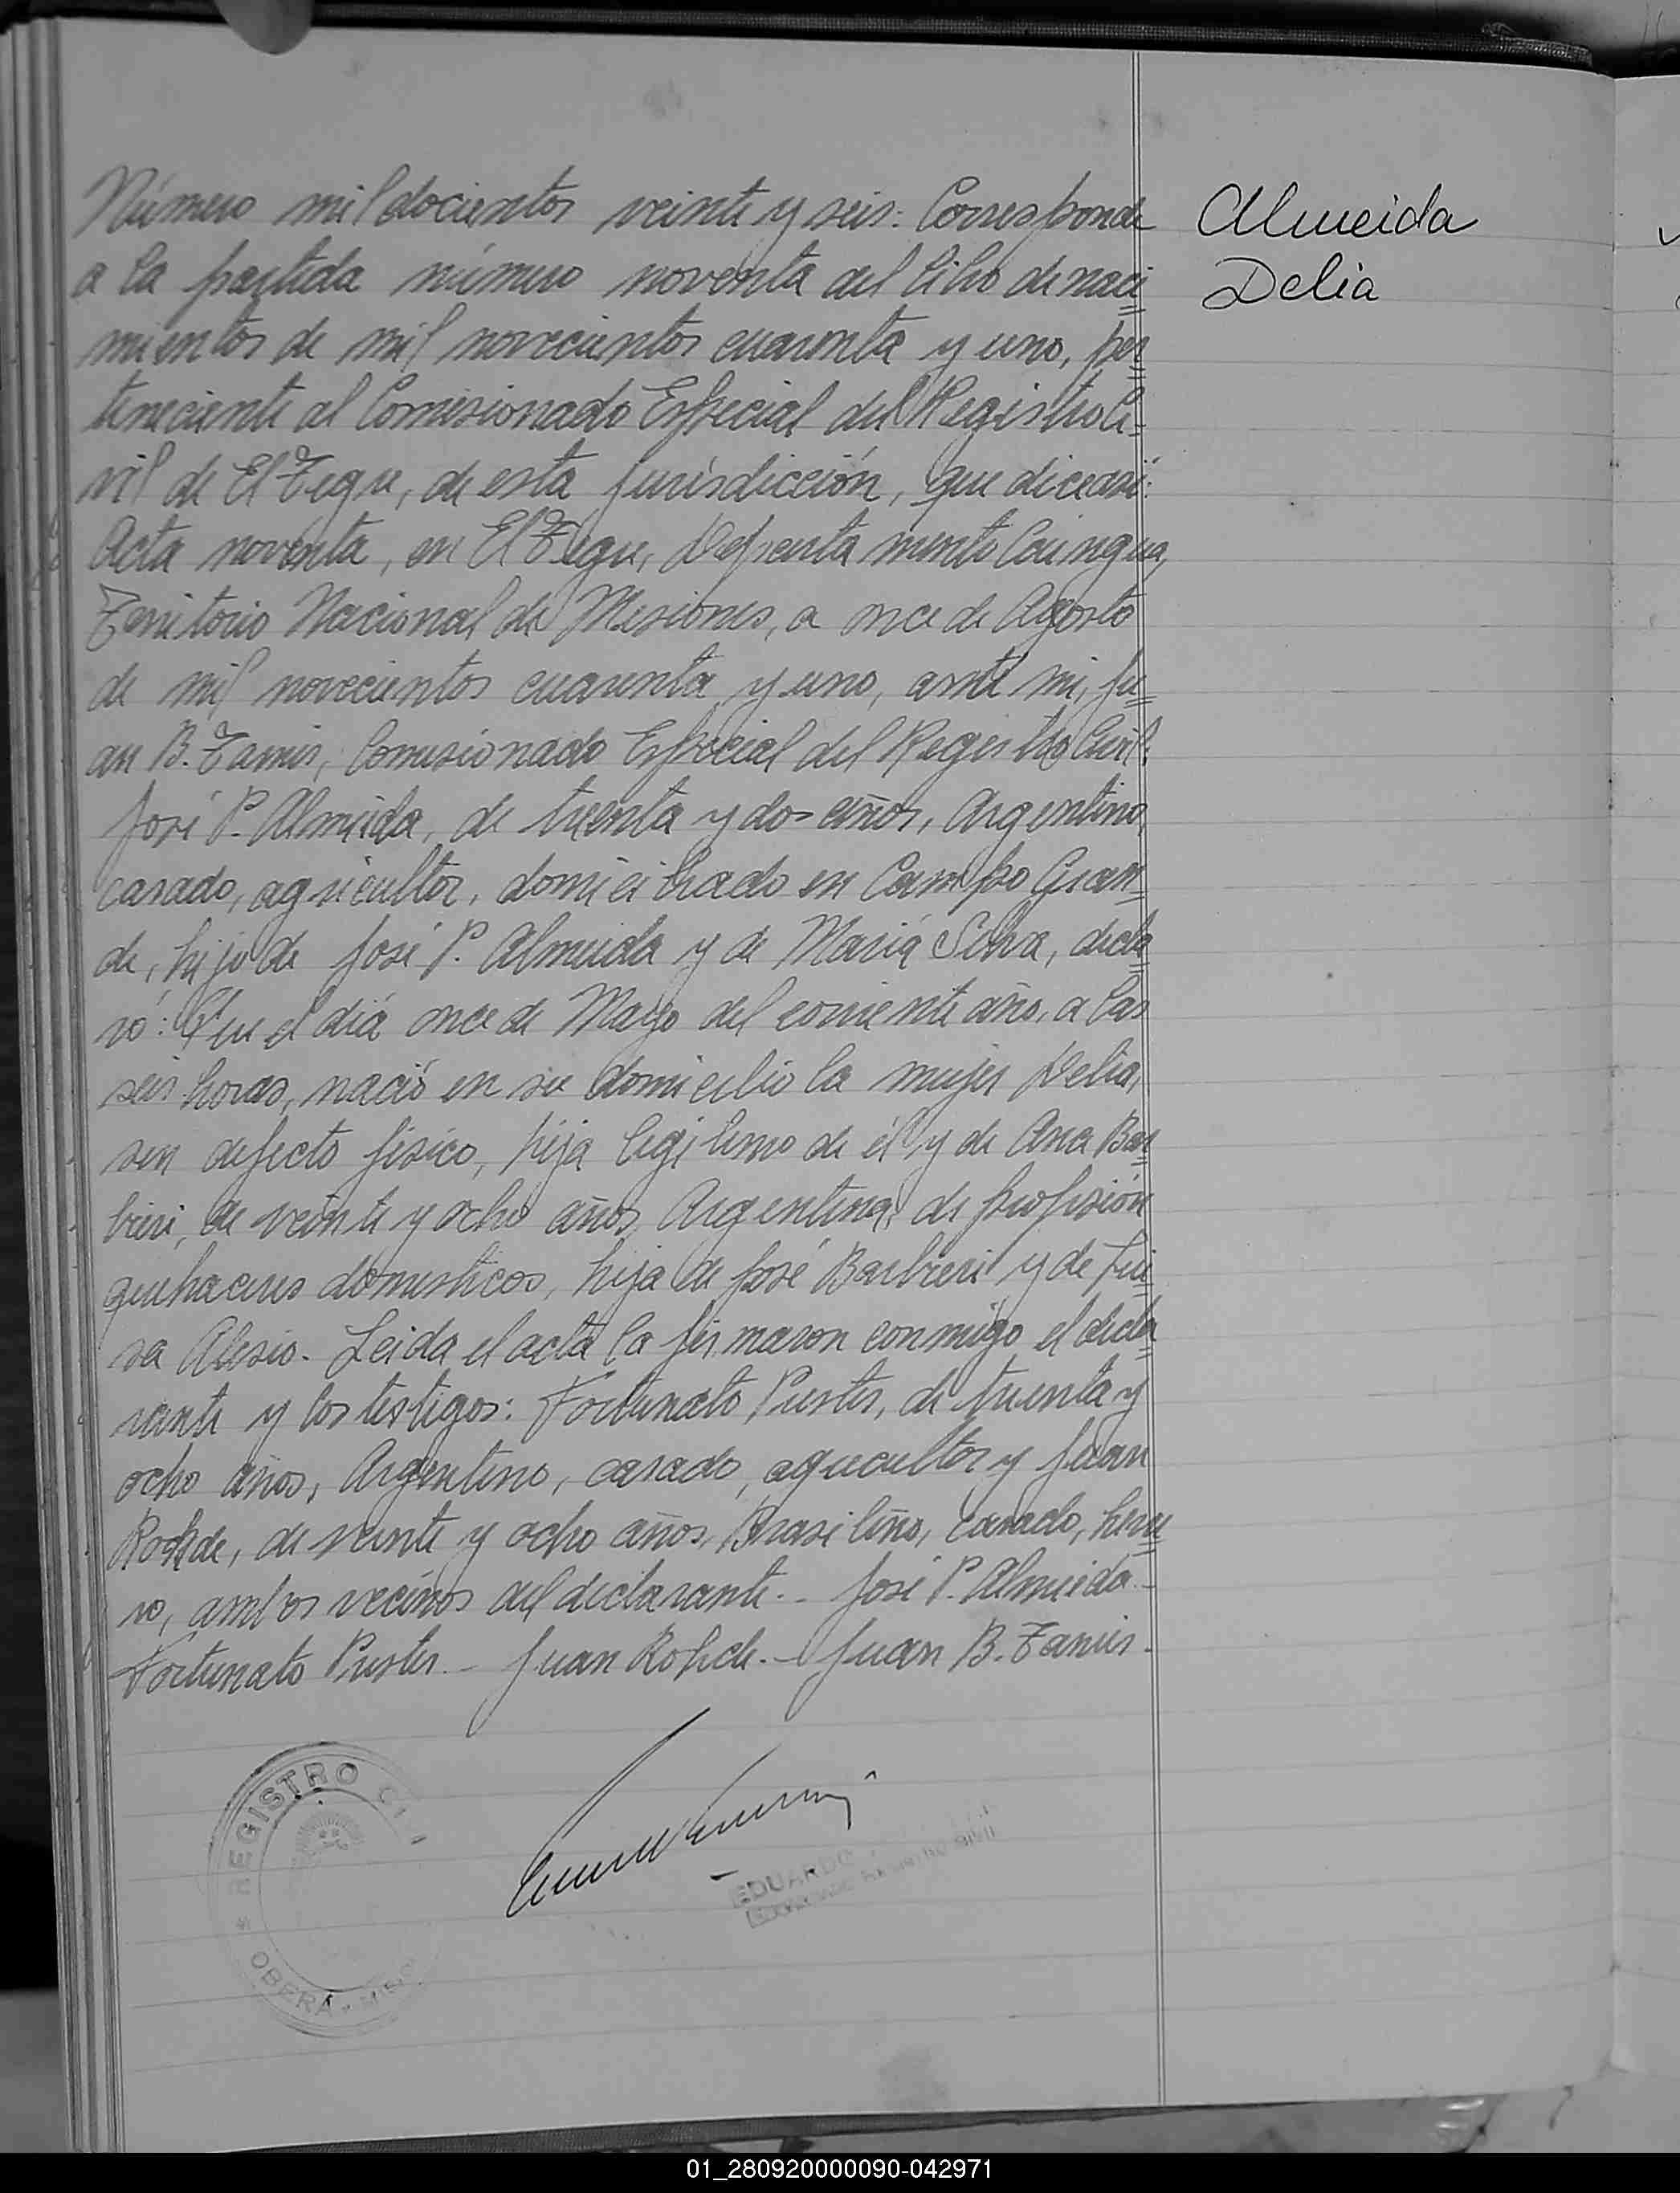 Número mil docientos veinte y seis: Corresponde
a la partida número noventa del libro de naci=
mientos de mil novecientos cuarenta y uno, per=
teneciente al Comisionado Especial del Registro Ci=
vil de El Tegu, de esta jurisdicción, que dice así:
Acta noventa, en El Tegu, Departamento Caingua,
Territorio Nacional de Misiones, a once de Agosto
de mil novecientos cuarenta y uno, ante mi, Ju=
an B. , Comisionado Especial del Registro Civil:
José P. Almeida, de treinta y dos años, Argentino,
casado, agricultor, domiciliado en Campo Gran=
de, hijo de José P. Almeida y de María Silva, decla=
ró: Que el día once de Mayo del corriente año, a las
seis horas, nació en su domicilio la mujer Delia,
sin defecto físico, hija legitimo de él y de Ana Bar=
bieri, de veinte y ocho años, Argentina, de profesión
quehaceres domesticos, hija de José Barbieri y de Lui=
sa Alesio. Leida el acta la firmaron conmigo el decla=
rante y los testigos: Fortunato , de treinta y
ocho años, Argentino, casado, agricultor y Juan
Rohde, de veinte y ocho años, Brasileño, casado, herre=
ro, ambos vecinos del declarante.- José P. Almeida.-
Fortunato .- Juan Rohde.- Juan B. .
Almeida
Delia
REGISTRO CI
OBERÁ - MIS
EDUARDO
01_280920000090-042971